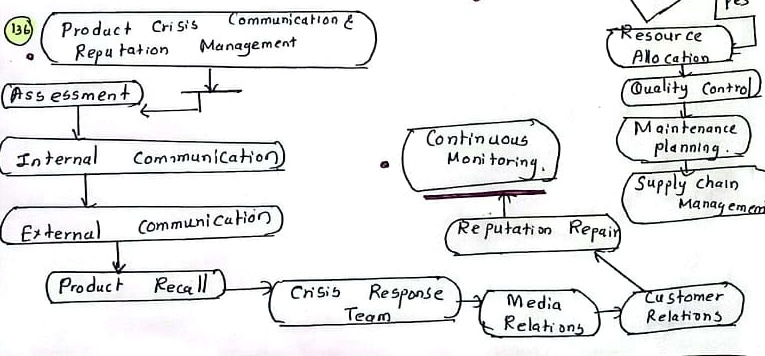 136
Product Crisis Communication &
Reputation Management
Assessment
Internal Communication
External Communication
Product Recall
Crisis Response
Team
Media
Relations
Customer
Relations
Reputation Repair
Continuous
Monitoring.
Yes
Resource
Allocation
Quality Control
Maintenance
planning.
Supply chain
Management